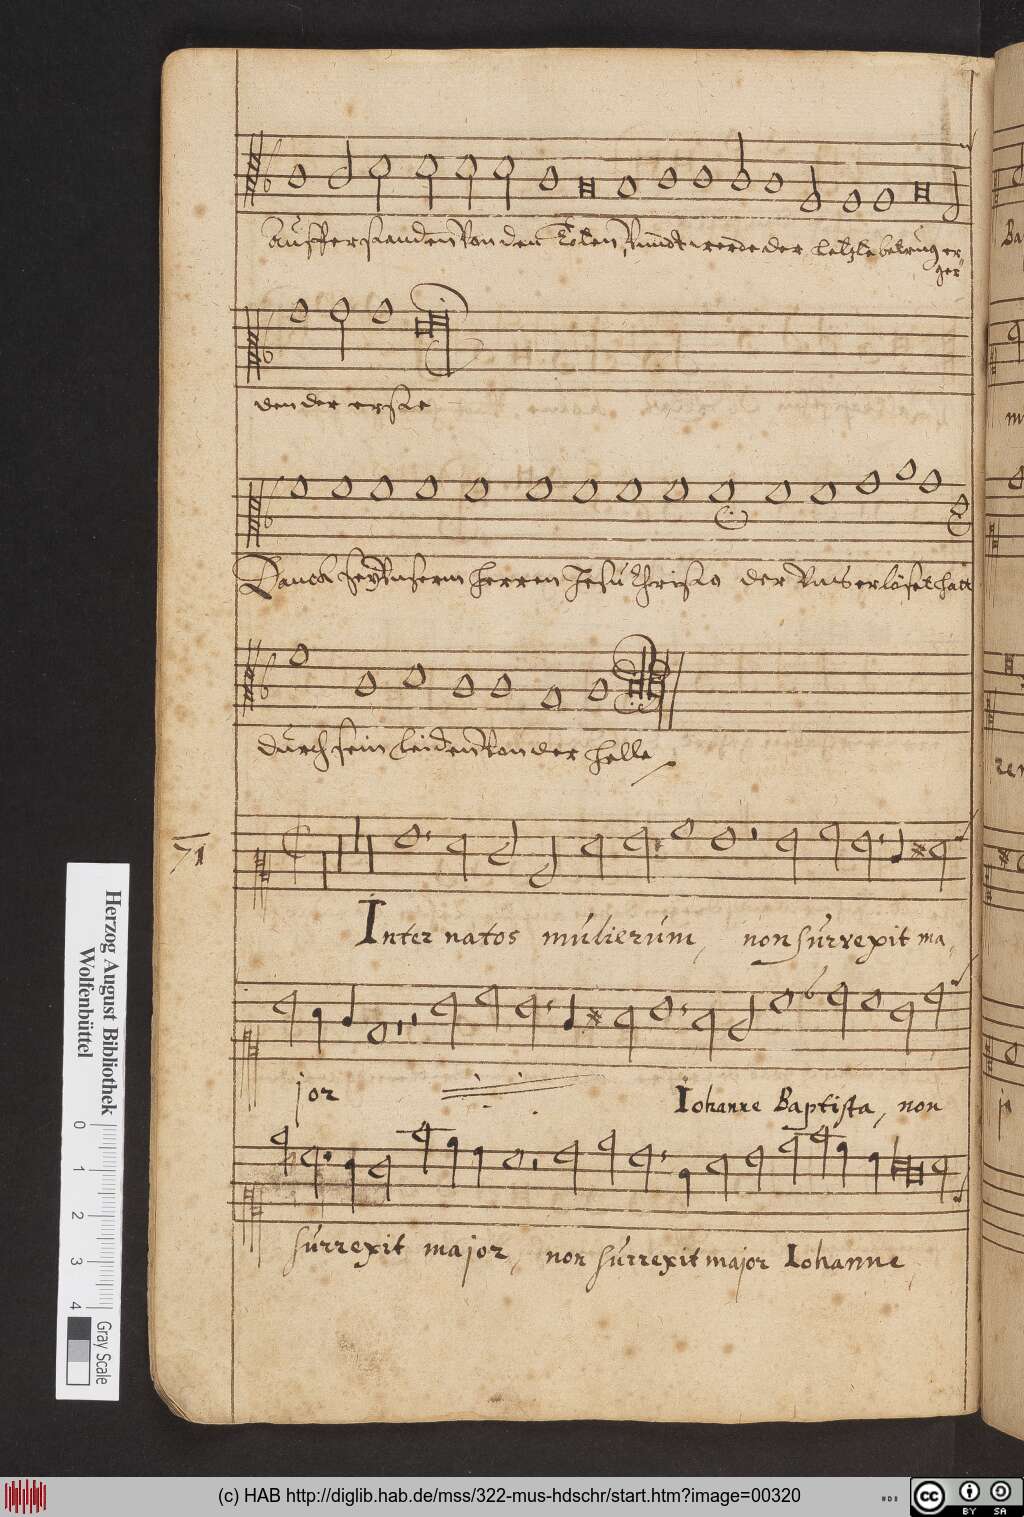 aufferstanden von den Todten, Vnndt werde der letzte betrug er
ger
den der erste
Danck sey Vnserm herren Jesu Christo der Vns erlöset hatt
durch sein leiden von der helle
71
Inter natos mulierum, non surrexit ma,
jor Iohanne Baptista, non
surrexit major, non surrexit major Iohanne
Herzog August Bibliothek
Wolfenbüttel
0 1 2 3 4
Gray Scale
(c) HAB http://diglib.hab.de/mss/322-mus-hdschr/start.htm?image=00320
cc BY SA